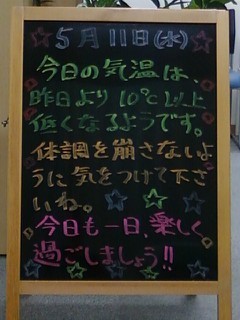 5月11日(水)
今日の気温は、
昨日より10℃以上
低くなるようです。
体調を崩さないよ
うに気をつけて下さ
いね。
今日も一日、楽しく
過ごしましょう!!